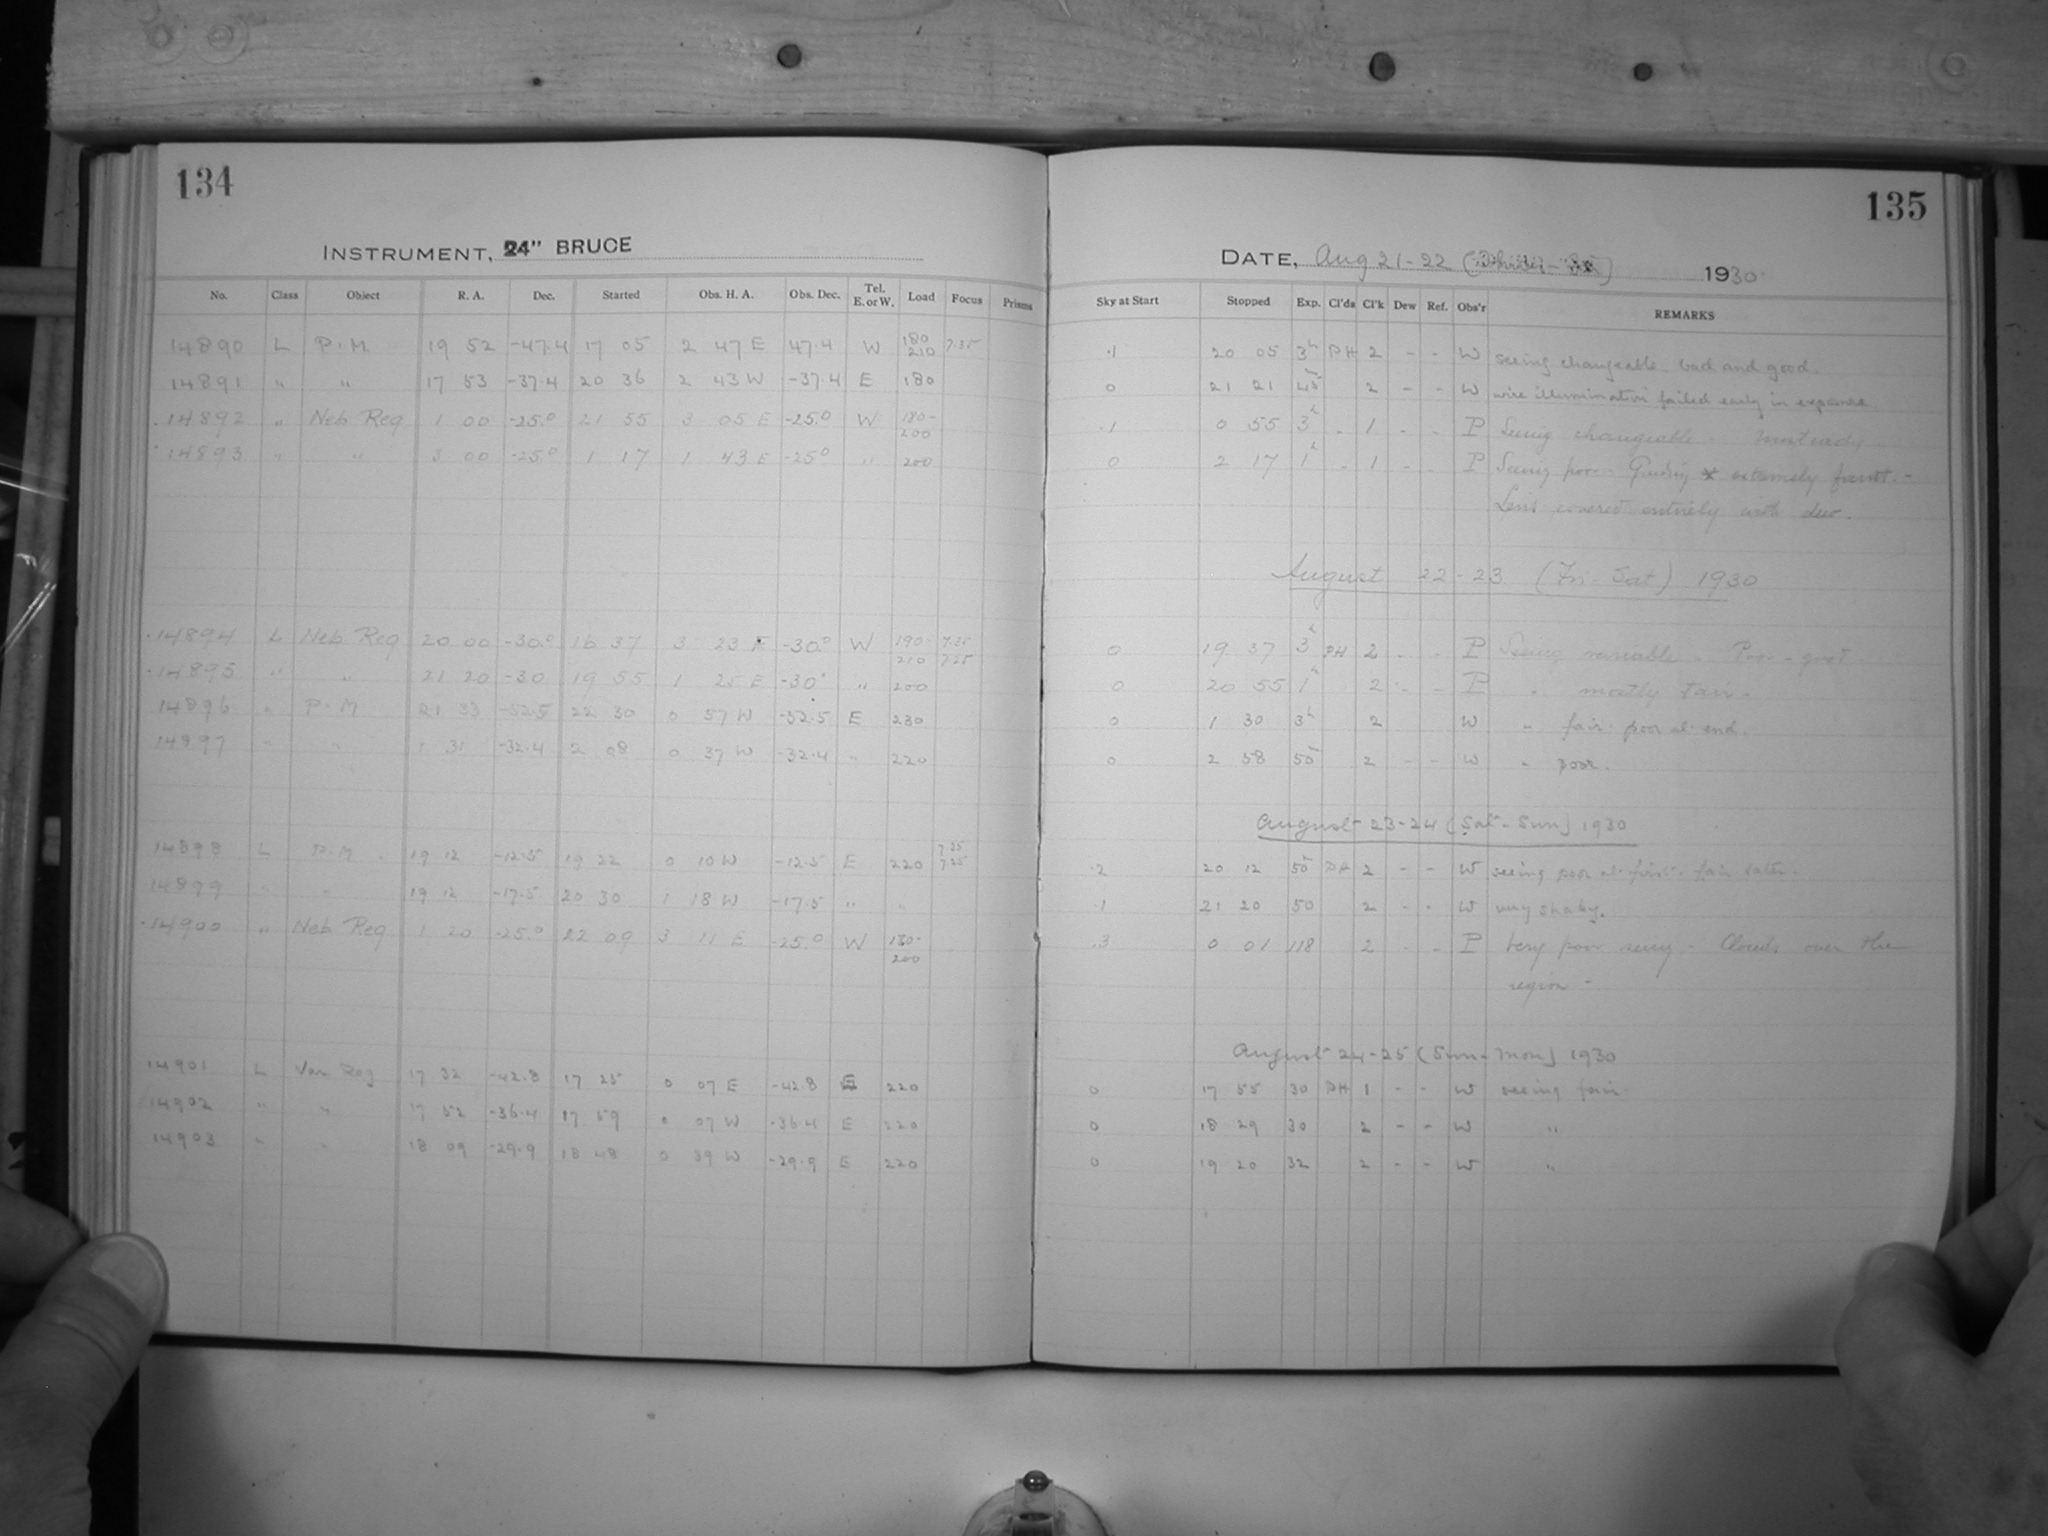 134
INSTRUMENT, 24" BRUCE
No. Class Object R. A. Dec. Started Obs. H. A. Obs. Dec. Tel. E. or W. Load Focus Prisms
14890 L P.M. 19 52 -47.4 17 05 2 47 E 47.4 W 180 210 7.35
14891 " " 17 53 -37.4 20 36 2 43 W -37.4 E 180
14892 " Neb Reg 1 00 -25.0 21 55 3 05 E -25.0 W 180- 200
14893 " " 3 00 -25.0 1 17 1 43 E -25.0 " 200
14894 L Neb Reg 20 00 -30.0 16 37 3 23 E -30.0 W 190- 210
14895 " " 21 20 -30 19 55 1 25 E -30 " 200
14896 " P.M 21 33 -32.5 22 30 0 57 W -32.5 E 230
14897 " " 1 31 -32.4 2 08 0 37 W -32.4 " 220
14898 L P.M. 19 12 -12.5 19 22 0 10 W -12.5 E 220
14899 " " 19 12 -17.5 20 30 1 18 W -17.5 " "
14900 " Neb Reg 1 20 -25.0 22 09 3 11 E -25.0 W 180- 200
14901 L Var Reg 17 32 -42.8 17 25 0 07 E -42.8 E 220
14902 " " 17 52 -36.4 17 59 0 07 W -36.4 E 220
14903 " " 18 09 -29.9 18 48 0 39 W -29.9 E 220
135
DATE, Aug 21-22 1930
Sky at Start Stopped Exp. Cl'ds Cl'k Dew Ref. Obs'r REMARKS
.1 20 05 3h PH 2 - - W seeing changeable bad and good.
0 21 21 45 2 - - W wire illumination failed early in exposure
.1 0 55 3h - 1 - - P Seeing changeable - Unsteady
0 2 17 1h - 1 - - P Seeing poor - Guiding * extremely faint. -
Lens covered entirely with dew.
August 22-23 (Fri-Sat) 1930
0 19 37 3h PH 2 - - P Seeing variable - Poor - good.
0 20 55 1h 2 - - P " mostly Fair.
0 1 30 3h 2 W " fair poor at end.
0 2 58 50 2 - - W " poor.
August 23-24 (Sat-Sun) 1930
.2 20 12 50 PH 2 - - W seeing poor at first fair later.
.1 21 20 50 2 - - W very shaky.
.3 0 01 118 2 - - P Very poor seeing - Clouds over the
region -
August 24-25 (Sun-Mon) 1930
0 17 55 30 PH 1 - - W seeing fair
0 18 29 30 2 - - W "
0 19 20 32 2 - - W "